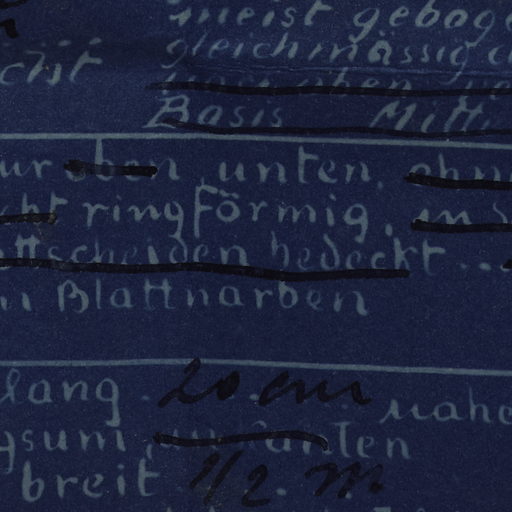 meist geboge
gleichmässig
chst
und oben
Basis Mitt
ur oben, unten, ohn
cht ringförmig, in
attscheiden bedeckt...
Blattnarben
lang 20 cm nahe
unten
breit 1/2 m